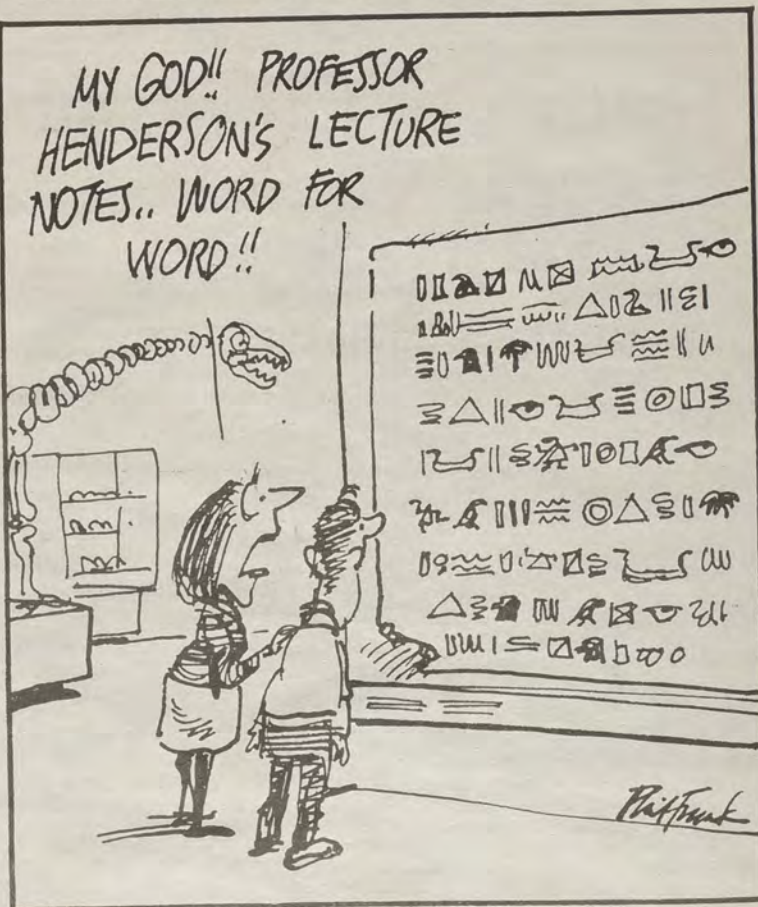 MY GOD!! PROFESSOR
HENDERSON'S LECTURE
NOTES.. WORD FOR
WORD!!
Phil Frank